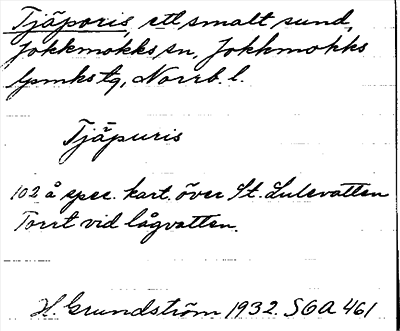 Tjäporis, ett smalt sund,
Jokkmokks sn, Jokkmokks
lpmks tg, Norrb. l.
Tjäpuris
102 å spec. kart. över St. Lulevatten
Torrt vid lågvatten.
H. Grundström 1932. SOA 461